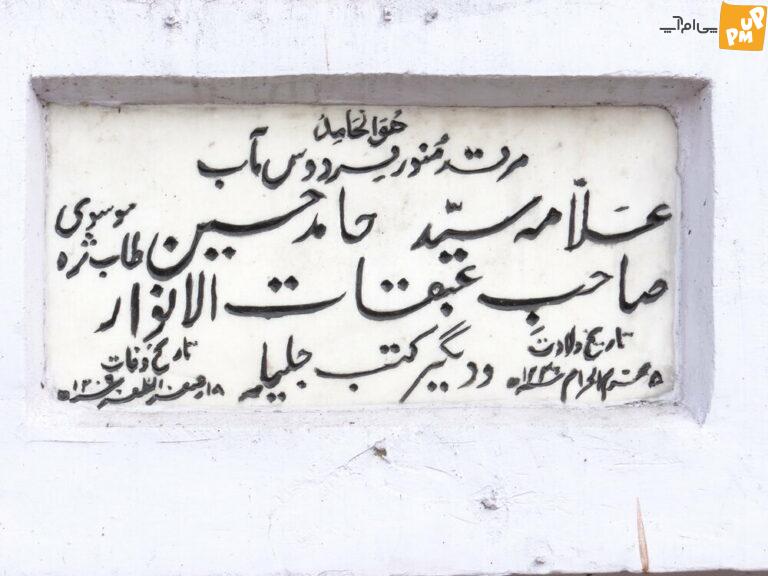 پی ام آپ
UP
PM
هُوَ الْحَامِدُ
مرقد مُنور فردوس مآب
علّامہ سیّد حامد حسین موسوی طاب ثرہ
صاحبِ عبقات الانوار
ودیگیر کتب جلیلہ
تاریخ ولادت
۵ محرم الحرام ۱۲۴۶ھ
تاریخ وفات
۱۸ صفر المظفر ۱۳۰۶ھ